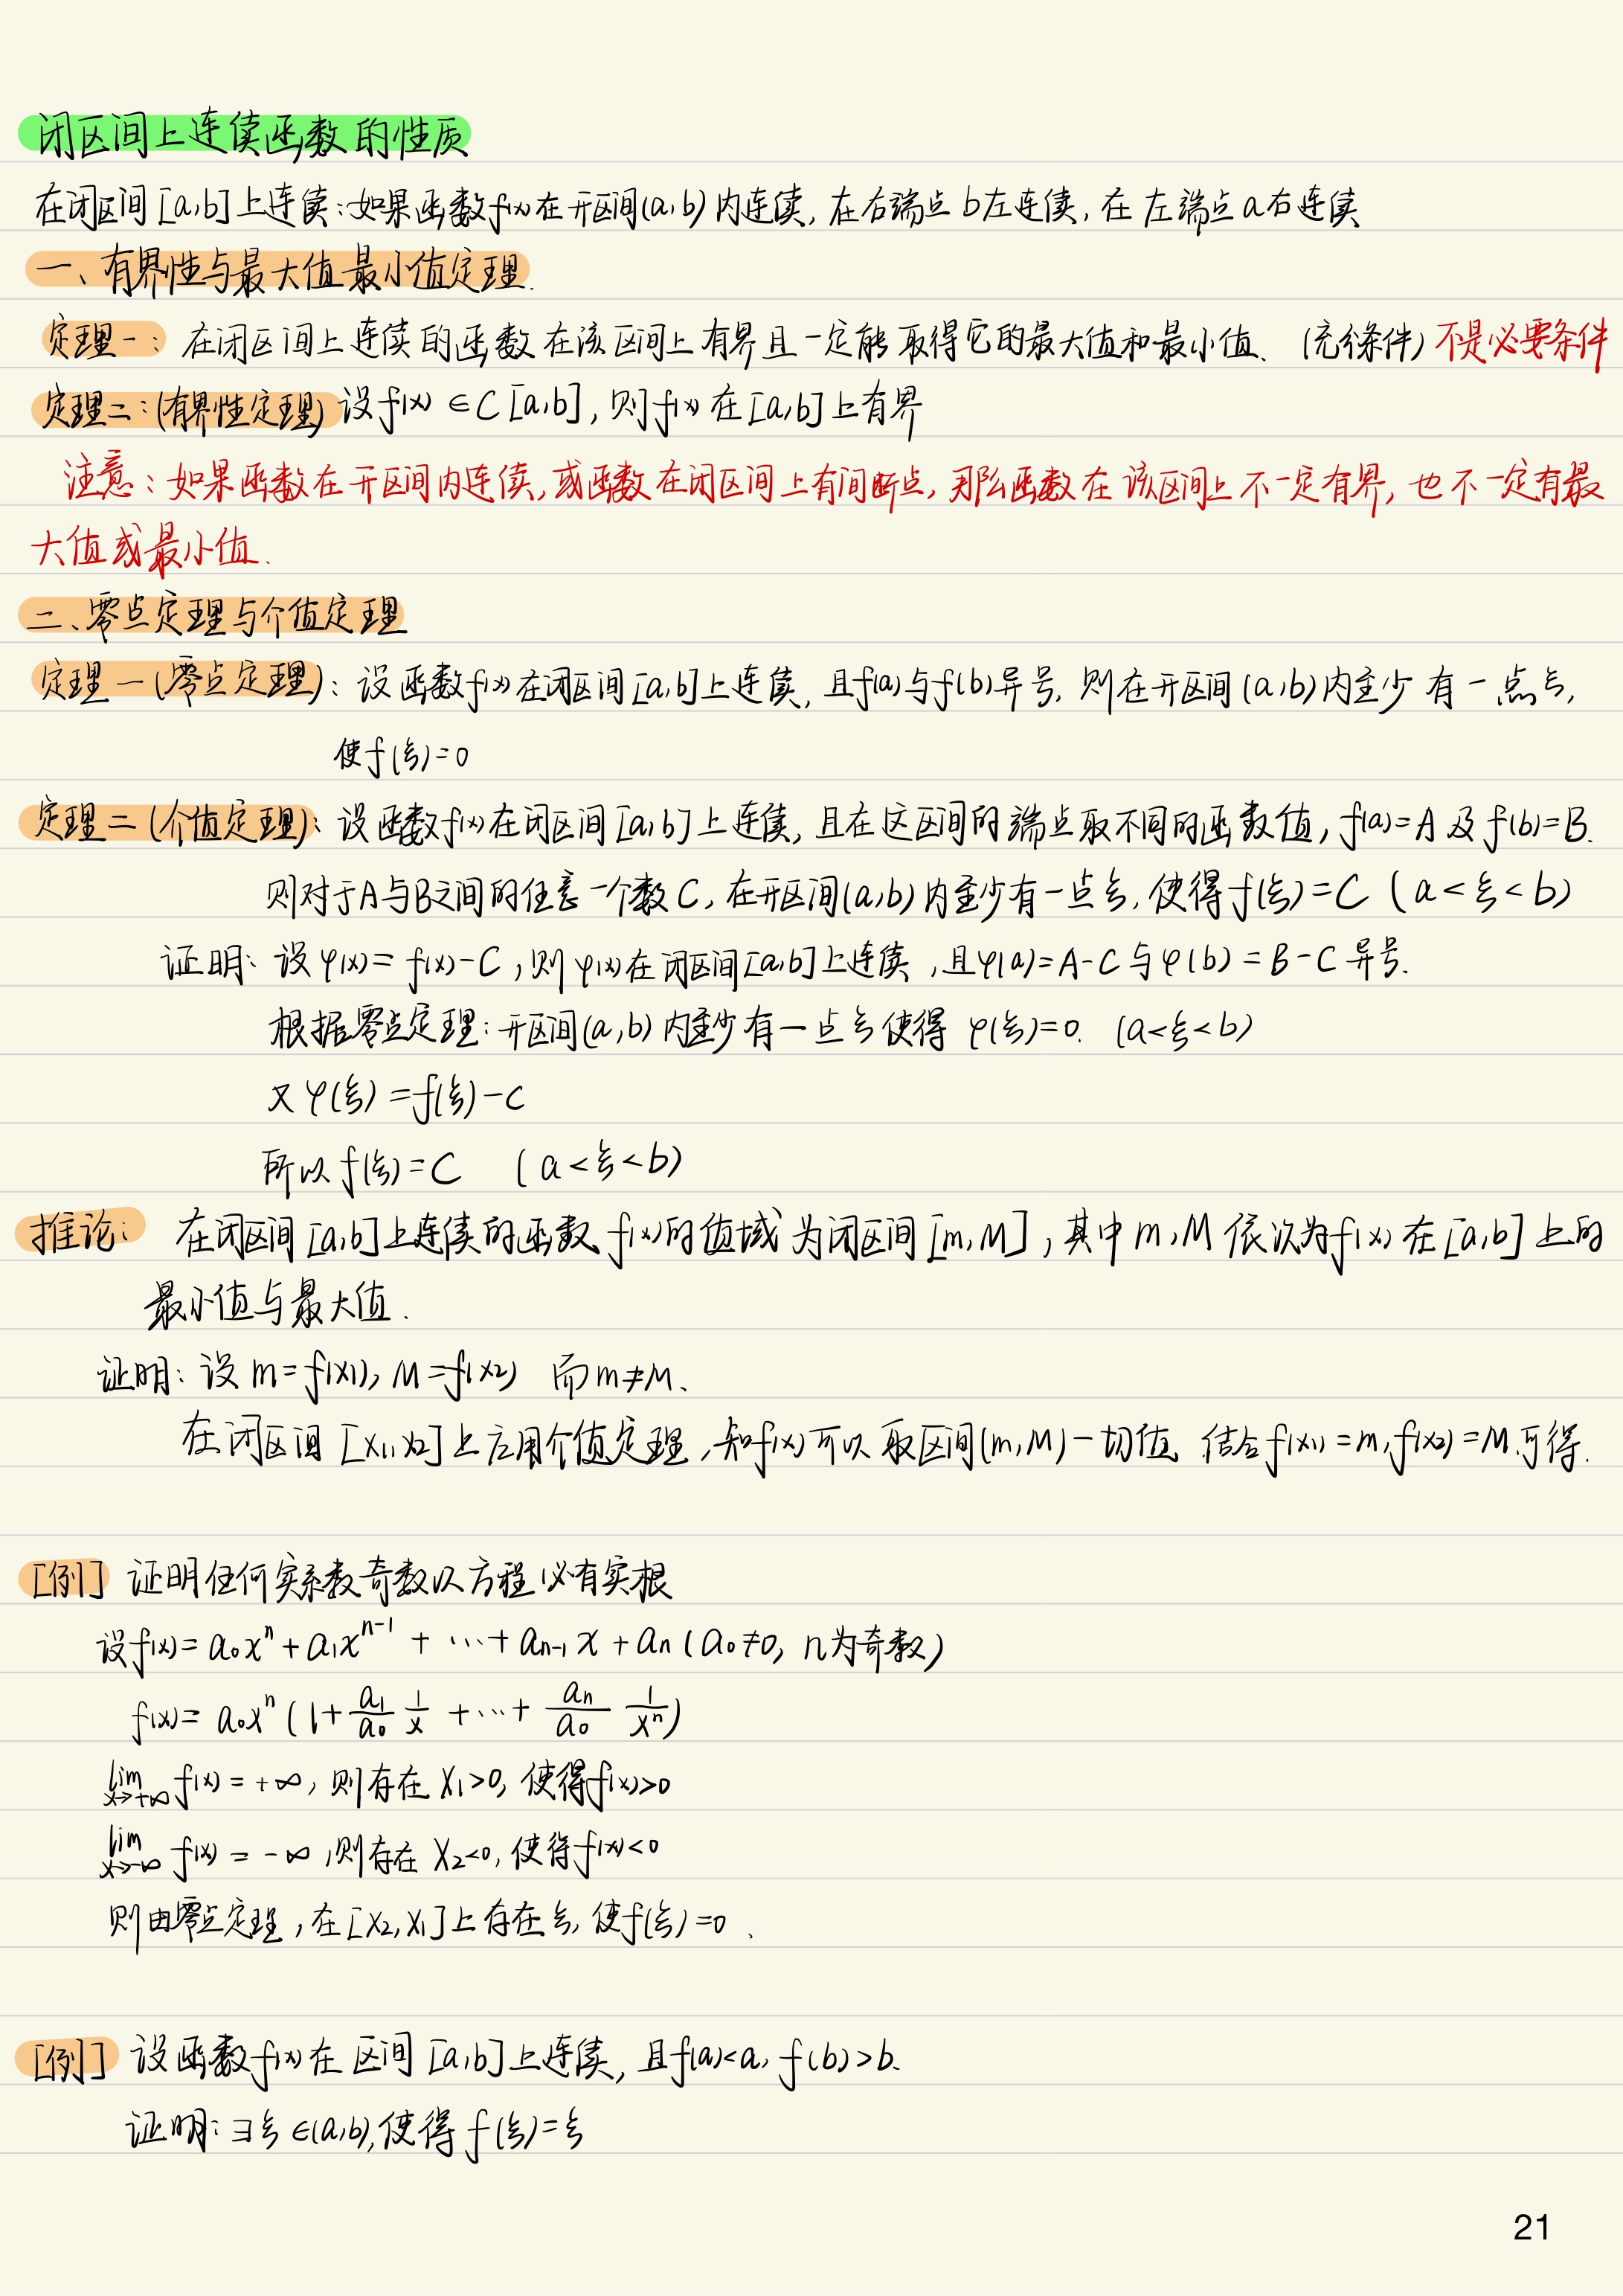 闭区间上连续函数的性质
在闭区间[a,b]上连续:如果函数f(x)在开区间(a,b)内连续,在右端点b左连续,在左端点a右连续
一、有界性与最大值最小值定理.
定理一: 在闭区间上连续的函数在该区间上有界且一定能取得它的最大值和最小值、(充分条件) 不是必要条件
定理二:(有界性定理) 设f(x)∈C[a,b],则f(x)在[a,b]上有界
注意:如果函数在开区间内连续,或函数在闭区间上有间断点,那么函数在该区间上不一定有界,也不一定有最
大值或最小值.
二、零点定理与介值定理
定理一(零点定理):设函数f(x)在闭区间[a,b]上连续,且f(a)与f(b)异号,则在开区间(a,b)内至少有一点ξ,
使f(ξ)=0
定理二(介值定理):设函数f(x)在闭区间[a,b]上连续,且在这区间的端点取不同的函数值,f(a)=A及f(b)=B.
则对于A与B之间的任意一个数C,在开区间(a,b)内至少有一点ξ,使得f(ξ)=C (a<ξ<b)
证明:设φ(x)=f(x)-C,则φ(x)在闭区间[a,b]上连续,且φ(a)=A-C与φ(b)=B-C异号.
根据零点定理:开区间(a,b)内至少有一点ξ使得 φ(ξ)=0. (a<ξ<b)
又φ(ξ)=f(ξ)-C
所以f(ξ)=C (a<ξ<b)
推论: 在闭区间[a,b]上连续的函数f(x)的值域为闭区间[m,M],其中m,M依次为f(x)在[a,b]上的
最小值与最大值.
证明:设m=f(x₁),M=f(x₂) 而m≠M、
在闭区间[x₁,x₂]上应用介值定理,知f(x)可以取区间(m,M)一切值,结合f(x₁)=m,f(x₂)=M可得.
[例] 证明任何实系数奇数次方程必有实根
设f(x)=a₀xⁿ+a₁xⁿ⁻¹+⋯+aₙ₋₁x+aₙ(a₀≠0,n为奇数)
f(x)=a₀xⁿ(1+a₁/a₀ 1/x+⋯+aₙ/a₀ 1/xⁿ)
lim x→+∞ f(x)=+∞,则存在x₁>0,使得f(x)>0
lim x→-∞ f(x)=-∞,则存在x₂<0,使得f(x)<0
则由零点定理,在[x₂,x₁]上存在ξ,使f(ξ)=0、
[例] 设函数f(x)在区间[a,b]上连续,且f(a)<a,f(b)>b.
证明:∃ξ∈(a,b),使得f(ξ)=ξ
21